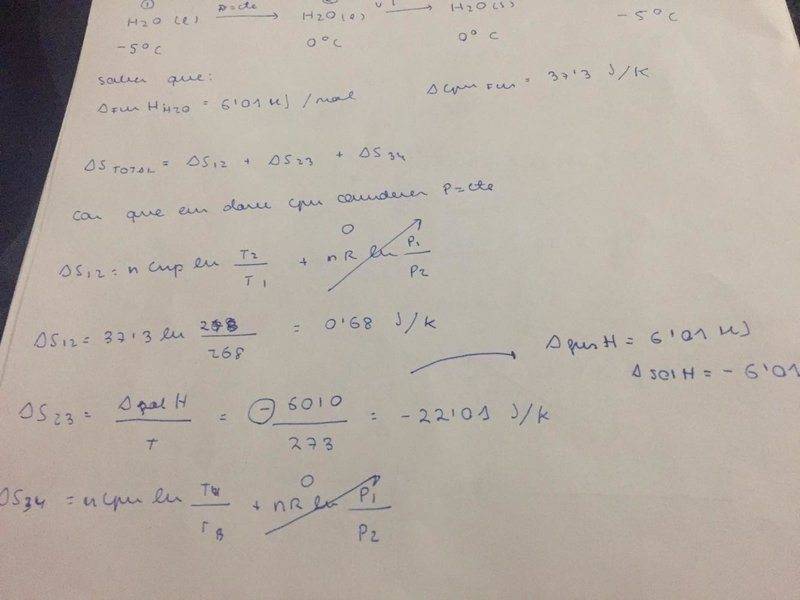 ①
H2O (l) P=cte → H2O (l) → H2O (s)
-5ºC 0ºC 0ºC -5ºC
saber que:
ΔFus HH2O = 6'01 KJ/mol ΔCpm Fus = 37'3 J/K
ΔS TOTAL = ΔS12 + ΔS23 + ΔS34
P=cte
ΔS12 = n Cmp ln T2/T1 + nR ln P1/P2 0
ΔS12 = 37'3 ln 273/268 = 0'68 J/K
Δfus H = 6'01 KJ
Δsol H = - 6'01
ΔS23 = Δsol H / T = - 6010/273 = -22'01 J/K
ΔS34 = n Cpm ln T4/T3 + nR ln P1/P2 0